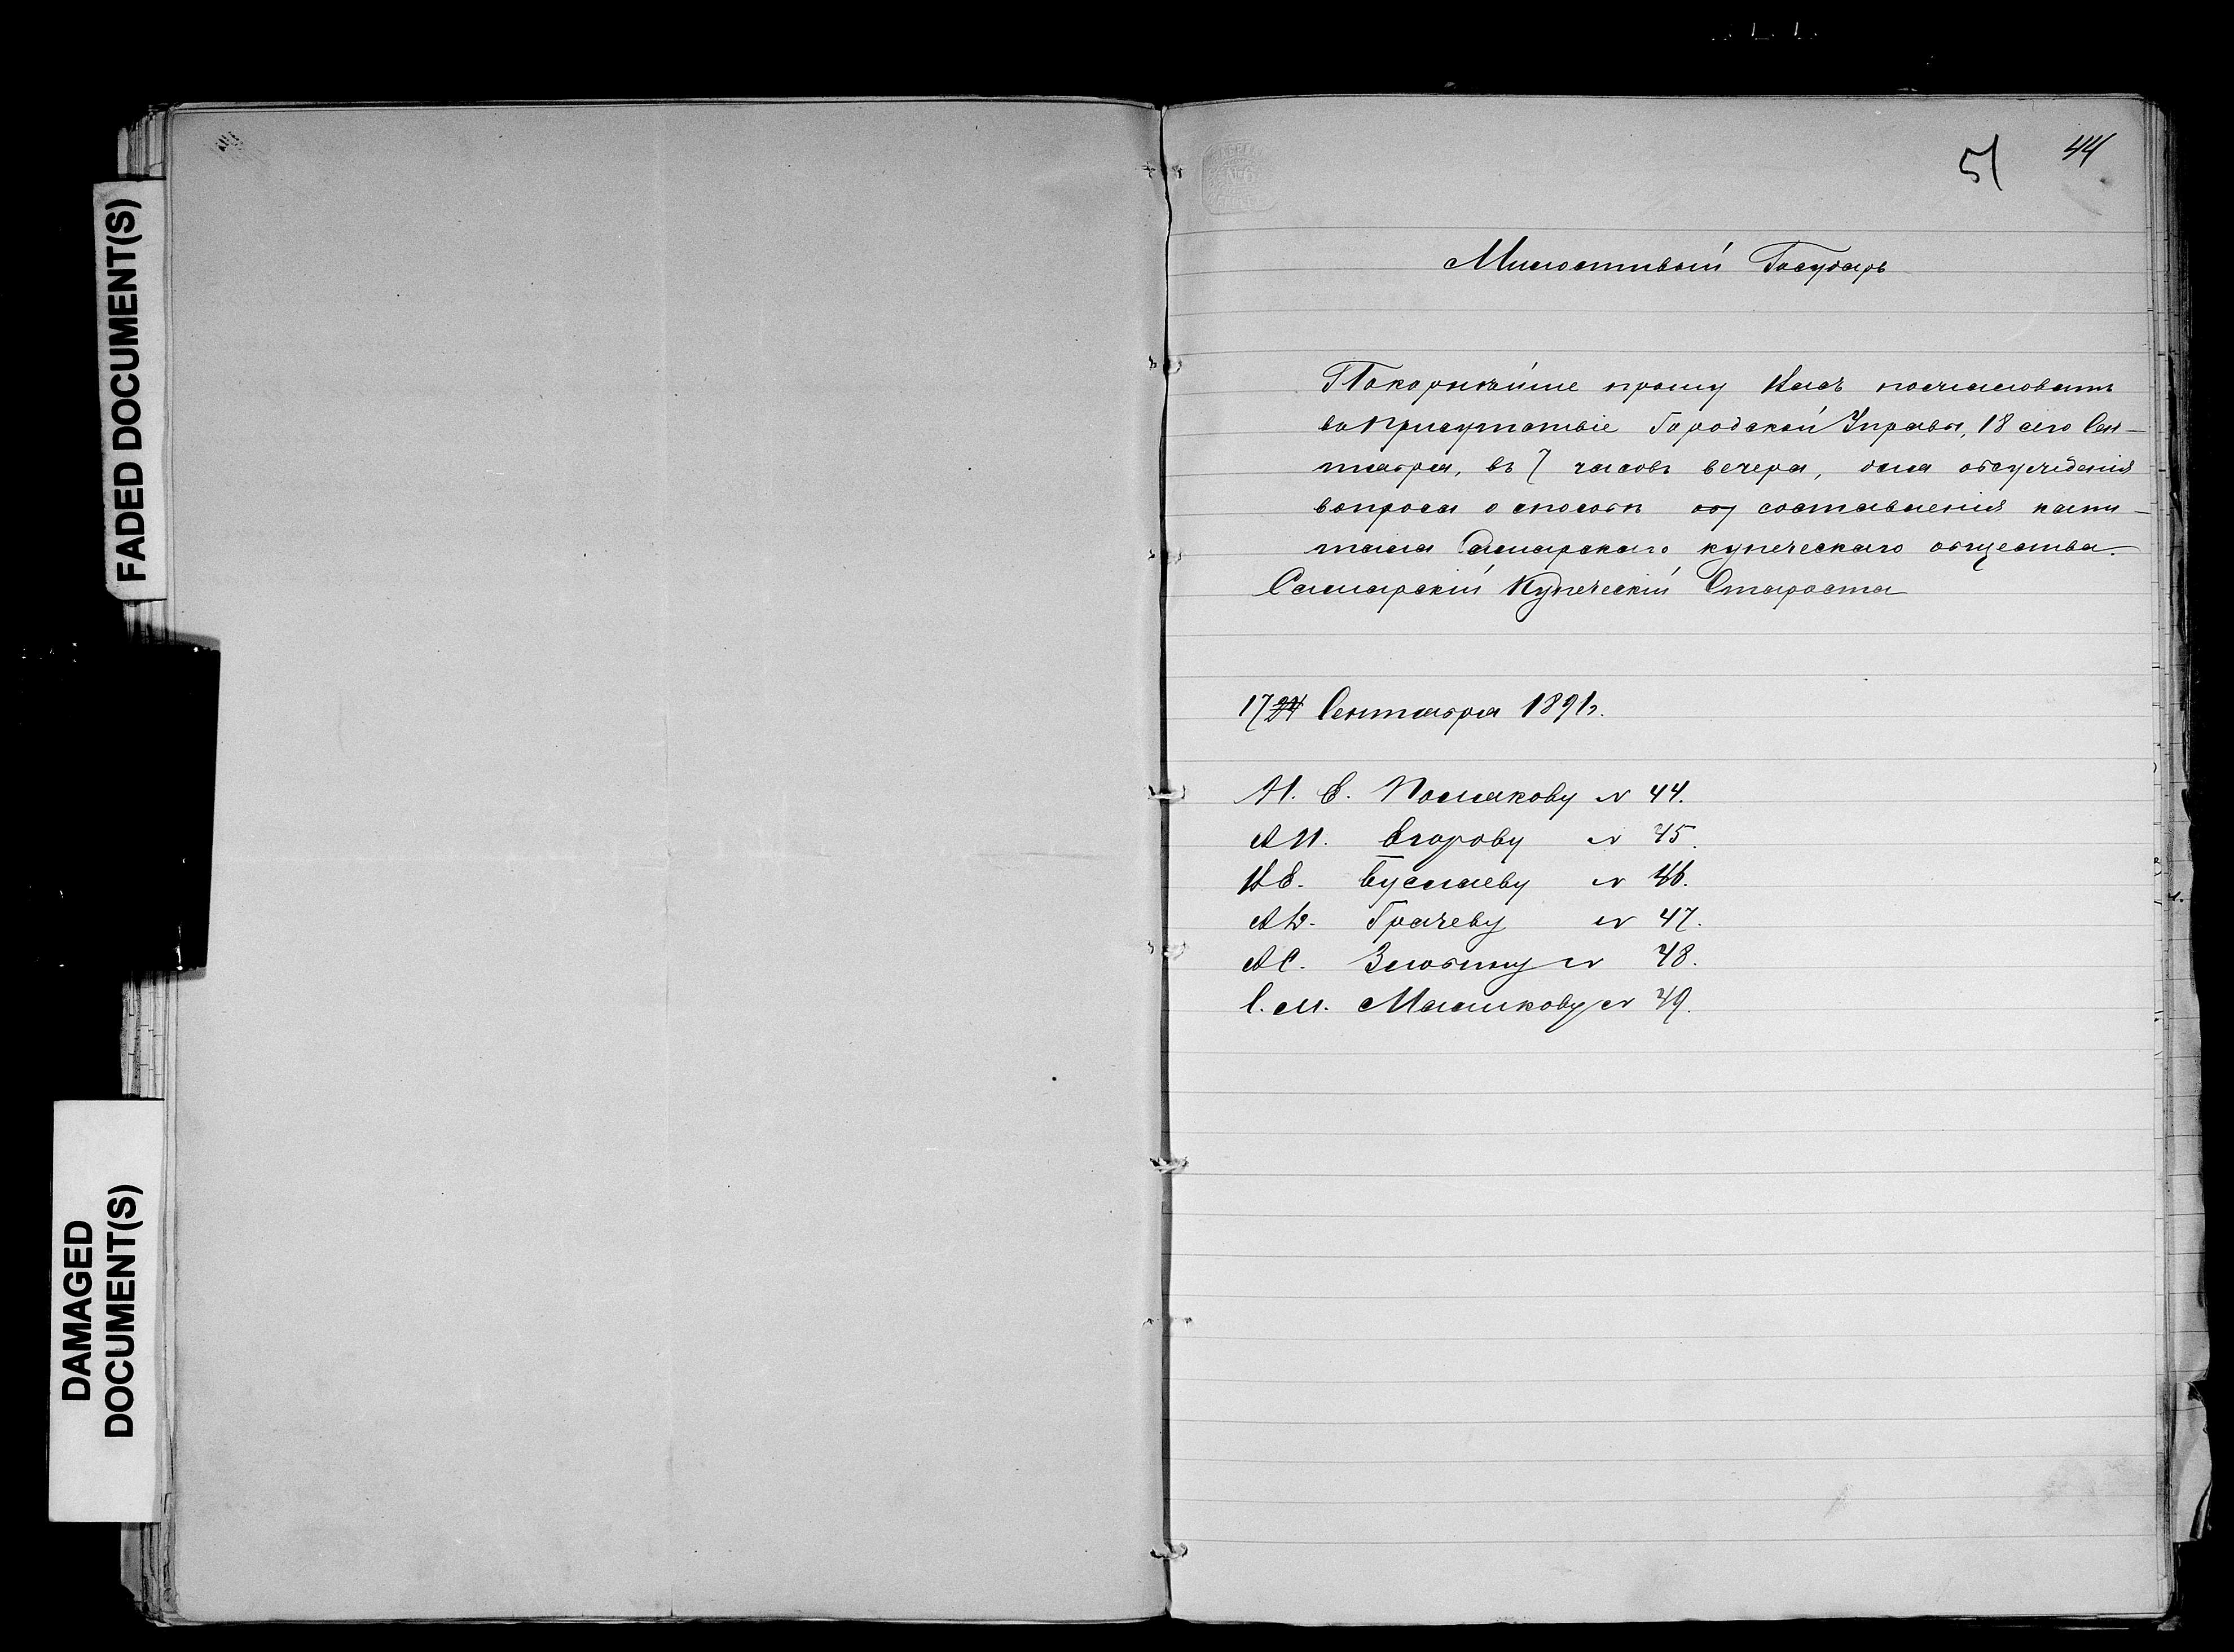 FADED DOCUMENT(S)
DAMAGED
DOCUMENT(S)
51 44
Милостивый Государь
Покорнѣйше прошу Васъ пожаловать
въ присутствіе Городской Управы, 18 сего Сен-
тября, въ 7 часовъ вечера, для обсужденія
вопроса о способѣ составленія капи-
тала Самарскаго купеческаго общества.
Самарскій Купеческій Староста
17 Сентября 1891 г.
Полякову № 44.
Егорову № 45.
В Е. Буслаеву № 46.
Грачеву № 47.
А С. Злобину № 48.
С. М. Машкову № 49.